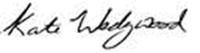 Kate Wedgwood